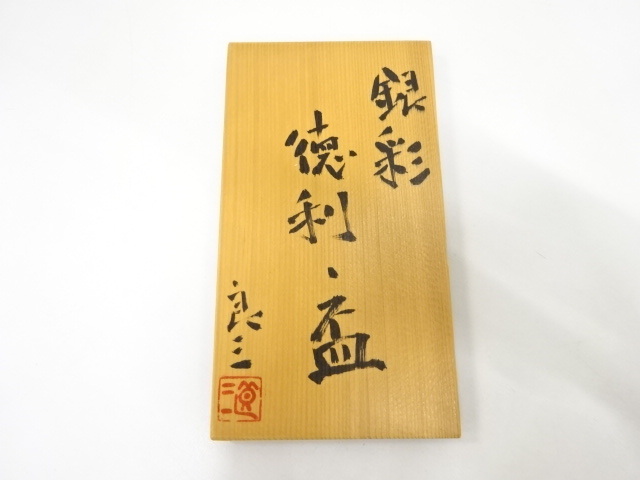 銀彩
徳利、盃
良三